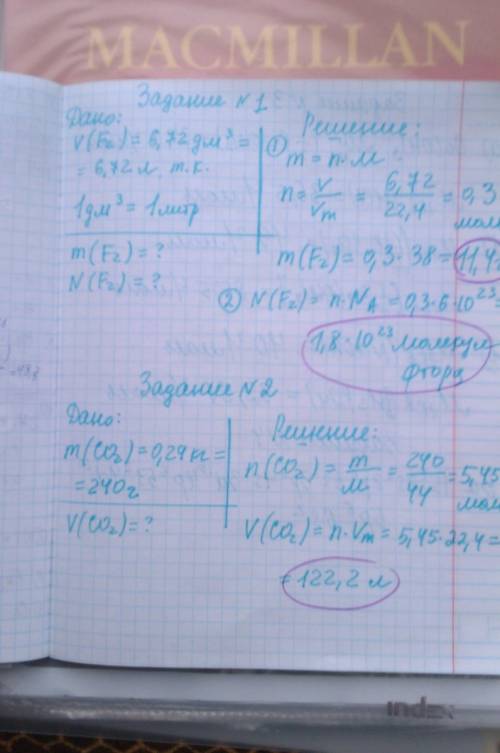 MACMILLAN
Задание №1
Дано:
V(F₂) = 6,72 дм³ =
= 6,72 л, т.к.
1дм³ = 1литр
m(F₂) = ?
N(F₂) = ?
Решение:
① m = n·M
n = V/Vm = 6,72/22,4 = 0,3
моль
m(F₂) = 0,3·38 = 11,4г
② N(F₂) = n·NA = 0,3·6·10²³
1,8·10²³ молекул
фтора
Задание №2
Дано:
m(CO₂) = 0,24кг =
= 240г
V(CO₂) = ?
Решение:
n(CO₂) = m/M = 240/44 = 5,45
моль
V(CO₂) = n·Vm = 5,45·22,4 =
= 122,2 л
index